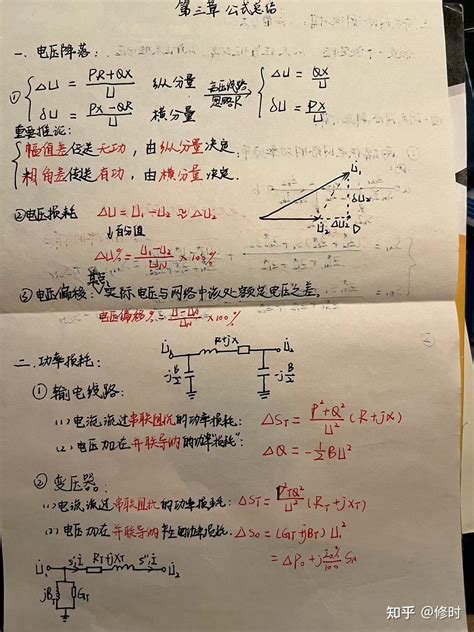 第三章 公式总结
一、电压降落：
① { ΔU = (PR+QX)/U 纵分量 高压线路 忽略R { ΔU = QX/U
δU = (PX-QR)/U 横分量 δU = PX/U
重要推论：
{ 幅值差传送无功，由纵分量决定。
相角差传送有功，由横分量决定。
②电压损耗 ΔU = U₁-U₂ ≈ ΔU₂
↓百分值
ΔU% = (U₁-U₂)/U_N ×100%
U̇₁ δU₂ U̇₂ ΔU₂ D
③电压偏移：实际电压与网络中该处额定电压之差。
电压偏移% = (U-U_N)/U_N ×100%
二、功率损耗：
U̇₁ R+jX U̇₂
-j B/2 -j B/2
① 输电线路：
(1) 电流流过串联阻抗的功率损耗：ΔS_T = (P²+Q²)/U² (R+jX)
(2) 电压加在并联导纳的功率"损耗"： ΔQ = -½BU²
② 变压器：
(1) 电流流过串联阻抗的功率损耗：ΔS_T = (P²+Q²)/U² (R_T+jX_T)
(2) 电压加在并联导纳的功率损耗：ΔS₀ = (G_T+jB_T)U₁²
= ΔP₀ + j I₀%/100 S_N
U̇₁ S', İ R_T+jX_T S'', İ U̇₂
jB_T G_T
知乎 @修时